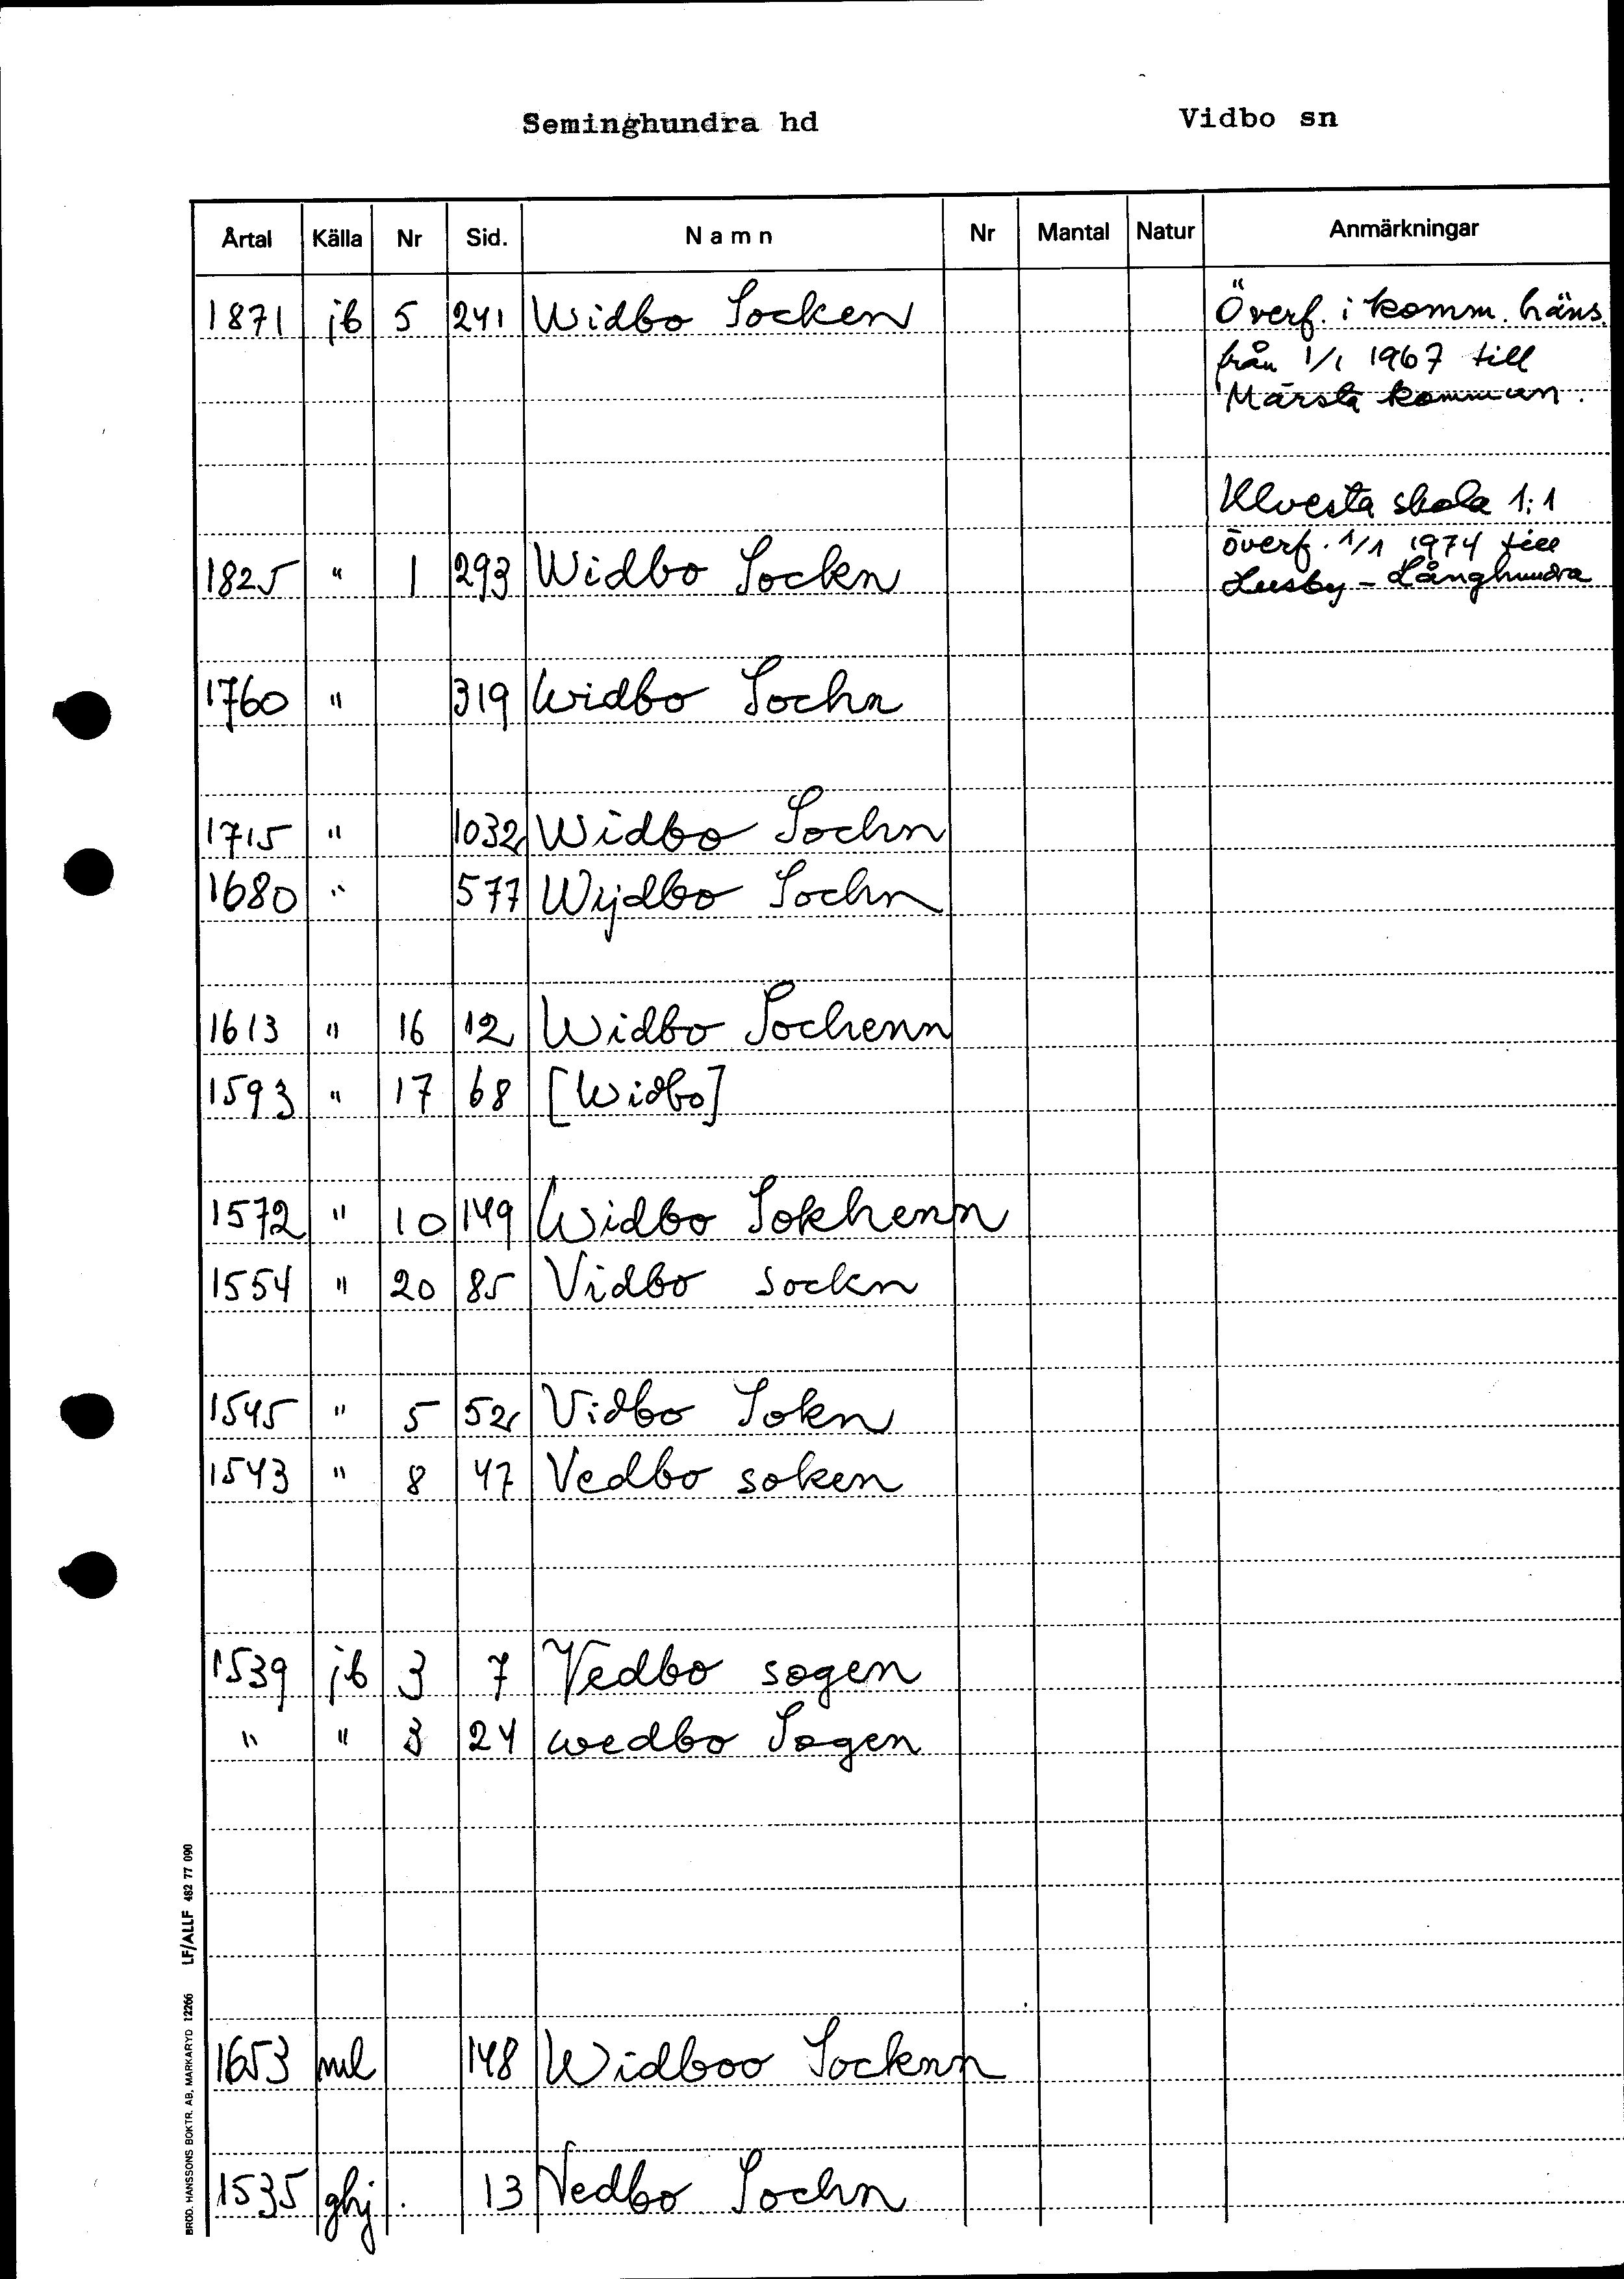 Seminghundra hd Vidbo sn
Årtal Källa Nr Sid. Namn Nr Mantal Natur Anmärkningar
1871 jb 5 241 Widbo Socken Överf. i komm. häns.
från 1/1 1967 till
Märsta kommun.
Klvesta skola 1:1
överf. 1/1 1974 till
1825 " 1 293 Widbo Sockn Lusby - Långhundra
1760 " 319 Widbo Sochn
1715 " 1032 Widbo Sochn
1680 " 577 Wijdbo Sochn
1613 " 16 12 Widbo Sochenn
1593 " 17 68 [Widbo]
1572 " 10 149 Widbo Sokhenn
1554 " 20 85 Vidbo sockn
1545 " 5 52 Vidbo Sokn
1543 " 8 47 Vedbo soken
1539 jb 3 7 Vedbo sogen
" " 3 24 wedbo Sogen
1653 ml 148 Widboo Socknn
1535 ghj. 13 Vedbo Sochn
BRÖD. HANSSONS BOKTR. AB, MARKARYD 12266 LF/ALLF 482 77 090